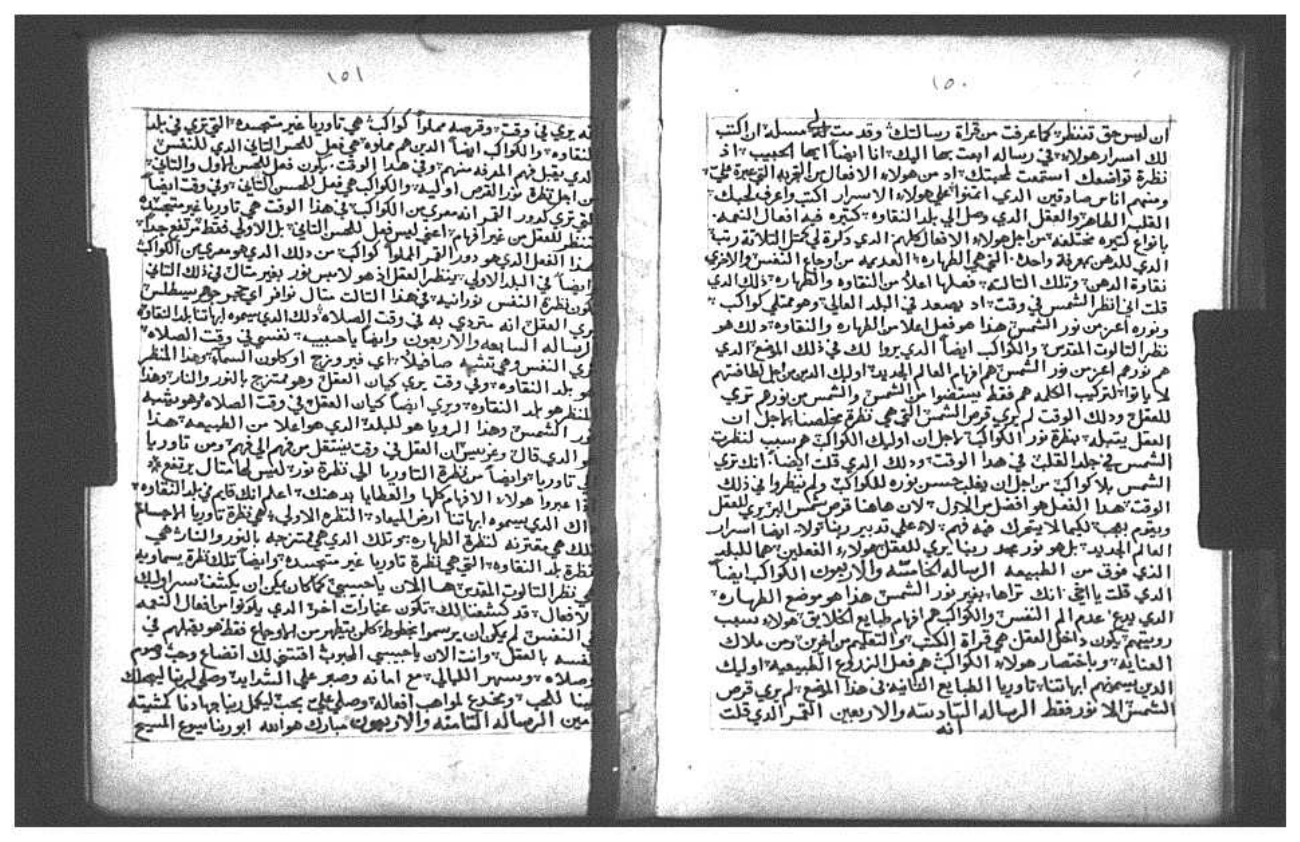 ١٥٠
ان ليس حق تنتظر كما عرفت من قراة رسالتك وقدمت لي مسله ان اكتب
لك اسرار هولاء في رساله ابعت بها اليك انا ايضاً ايها الحبيب اذ
نظرة تواضعك استمعت لمحبتك اذ من هولاء الافعال من التجربه التي عبرة علي
ومنهم اناس صادقين الدي ائتمنوا علي هولاء الاسرار اكتب واعرف لحبك
القلب الطاهر والعقل الدي وصل الي بلد النقاوه كتيره فيه افعال النعمه
بانواع كتيره مختلفه من اجل هولاء الافعال كلهم الدي دكرة لي كمتل التلاتة رتب
الدي للدهن بمعرفة واحدة التي هي الطهاره العديمه من اوجاع النفس والاخري
نقاوة الدهن وتلك التالته فعلها اعلا من النقاوه والطهاره دلك الدي
قلت اني انظر الشمس في وقت اد يصعد في البلد العالي وهو ممتلي كواكب
ونوره اعز من نور الشمس هدا هو فعل اعلا من الطهاره والنقاوه دلك هو
نظر التالوت المقدس والكواكب ايضاً الدي يروا لك في دلك الموضع الدي
هم نورهم اعز من نور الشمس هم افهام العالم الجديد اوليك الدين من اجل لطافتهم
لا ياتوا لتركيب الكلمه هم فقط يستضوا من الشمس والشمس من نورهم تري
للعقل ودلك الوقت لم يري قرص الشمس التي هي نظرة مخلصنا لاجل ان
العقل يتبلد بنظرة نور الكواكب لاجل ان اوليك الكواكب هم سبب لنظرت
الشمس في جلد القلب في هدا الوقت ودلك الدي قلت ايضاً انك تري
الشمس بلا كواكب من اجل ان يغلب حسن نوره للكواكب ولم ينظروا في دلك
الوقت هدا الفعل هو افضل من الاول لان هاهنا قرص شمس البر يري للعقل
ويقوم بهت لكيما لا يتحرك فيه فهم لا علي تدبير ربنا ولا ايضا اسرار
العالم الجديد بل هو نور مجد ربنا يري للعقل هولاء الفعلين هما للبلد
الدي فوق من الطبيعه الرساله الخامسه والاربعون الكواكب ايضاً
الدي قلت يا اخي انك تراها بغير نور الشمس هدا هو موضع الطهاره
الدي يدع عدم الم النفس والكواكب هم افهام طبايع الخلايق هولاء سبب
رويتهم يكون داخل العقل هي قراة الكتب والتعليم من اخرين ومن ملاك
العنايه وباختصار هولاء الكواكب هم فعل الزروع الطبيعيه اوليك
الدين يسمونهم ابهاتنا تاوريا الطبايع التانيه في هدا الموضع لم يري قرص
الشمس الا نور فقط الرساله السادسه والاربعين القمر الدي قلت
انه
١٥١
انه يري في وقت وقرصه مملوا كواكب هي تاوريا غير متجسده التي تري في بلد
النقاوه والكواكب ايضاً الدين هم مملوه هي فعل للحس التاني الدي للنفس
الدي يقبل فهم المعرفه منهم وفي هدا الوقت يكون فعل للحس الاول والتاني
من اجل نظرة نور القرص اوليه والكواكب هي فعل للحس التاني وفي وقت ايضاً
التي تري لدور القمر انه معري من الكواكب في هدا الوقت هي تاوريا غير متجسده
تنظر للعقل من غير افهام اعني ليس فعل للحس التاني بل الاولي فقط مرتفع جداً
هدا الفعل الدي هو دور القمر المملوا كواكب من دلك الدي هو معري من الكواكب
وايضاً في البلد الاولي ينظر العقل اد هو لابس نور بغير متال في دلك التاني
تكون نظرة النفس نورانيه في هدا التالت متال نوافر اي حجر جوهر سيطلس
يري العقل انه متردي به في وقت الصلاه دلك الدي يسموه ابهاتنا بلد النقاوه
الرساله السابعه والاربعون وايضا يا حبيبي تفسي في وقت الصلاه
تري النفس وهي تشبه صافيلا اي فيروزج او كلون السماء وهدا المنظر
هو بلد النقاوه وفي وقت يري كيان العقل وهو ممتزج بالنور والنار وهدا
المنظر هو بلد النقاوه ويري ايضاً كيان العقل في وقت الصلاه وهو يشبه
نور الشمس وهدا الرويا هو للبلد الدي هو اعلا من الطبيعه هدا
هو الدي قال ويوبيس ان العقل في وقت ينتقل من فهم الي فهم ومن تاوريا
الي تاوريا وايضاً من نظرة التاوريا الي نظرة نور ليس لها متال يرتفع
ادا عبروا هولاء الافهام كلها والغطايا بدهنك اعلم انك قايم في بلد النقاوه
داك الدي يسموه ابهاتنا ارض الميعاد النظره الاولي هي نظرة تاوريا الاجسام
تلك هي مقترنه لنظرة الطهاره وتلك الدي هي ممتزجه بالنور والنار هي
نظرة بلد النقاوه التي هي نظرة تاوريا غير متجسده وايضاً تلك نظرة سماويه
هي نظر التالوت المقدس ها الان يا حبيبي كما كان يمكن ان يكشف سر اوليك
الافعال قد كشفنا لك تكون عبارات اخر الدي يكونوا من افعال النعمه
في النفس لم يمكن ان يرسموا بخطوط كلمن يتطهر من الاوجاع فقط هو يقبلهم في
نفسه بالعقل وانت الان يا حبيبي الخبرت اقتني لك اتضاع وحب وصوم
وصلاه وبسهر الليالي مع امانه وصبر علي الشدايد وصلي لربنا ليهلك
بينا للحب ويخدع لمواهب افعاله وصلي علي بحب ليكمل ربنا جهادنا كمشيته
امين الرساله التامنه والاربعون مبارك هو الله ابو ربنا يسوع المسيح